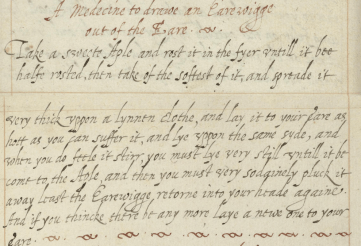 A Medecine to drawe an Earewigge
out of the Eare.
Take a sweete Aple and rost it in the fyer untill it bee
halfe rosted, then take of the softest of it, and spreade it
very thick uppon a lynnen Clothe, and lay it to your Eare as
hott as you can suffer it, and lye uppon the same syde, and
when you do feele it stirr, you must lye very still untill it be
come to the Aple, and then you must very sodginely pluck it
away least the Earewigge retorne into your heade againe.
And if you thincke there be any more laye a newe one to your
Eare.